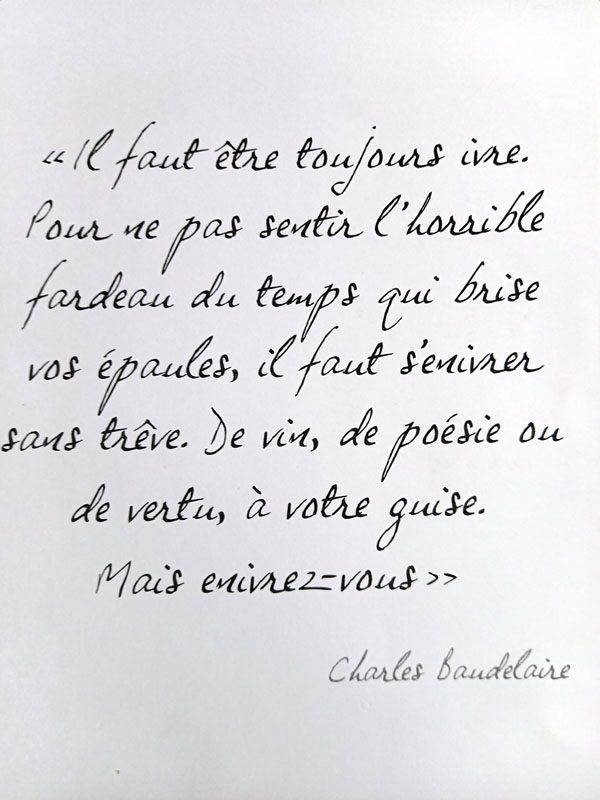 «Il faut être toujours ivre.
Pour ne pas sentir l'horrible
fardeau du temps qui brise
vos épaules, il faut s'enivrer
sans trêve. De vin, de poésie ou
de vertu, à votre guise.
Mais enivrez-vous»
Charles Baudelaire